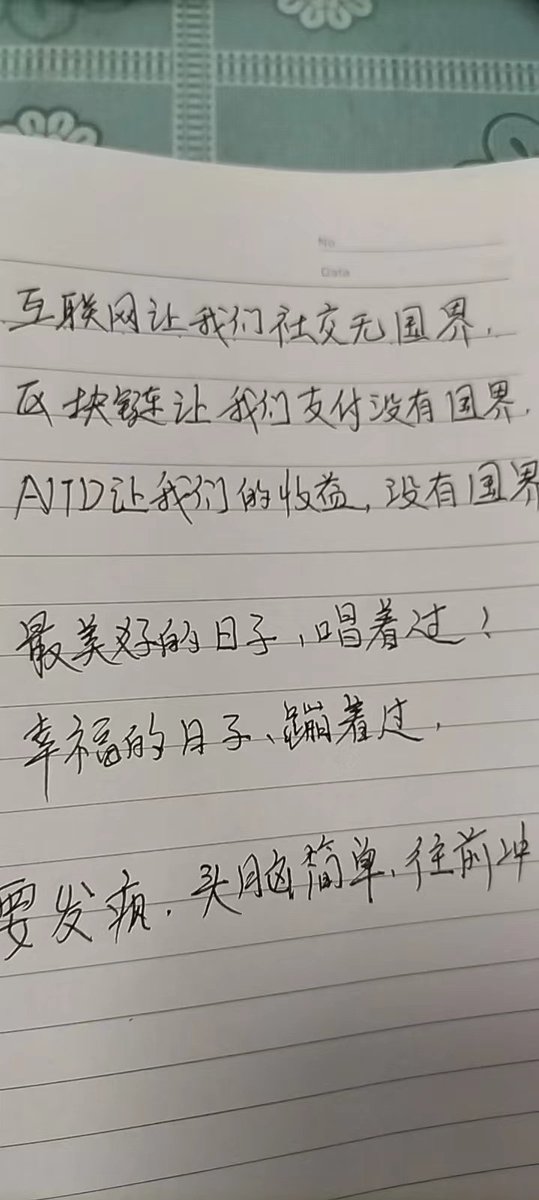 No
Data
互联网让我们社交无国界.
区块链让我们支付没有国界.
AITD让我们的收益,没有国界
最美好的日子,唱着过!
幸福的日子、蹦着过,
要发疯.头脑简单.往前冲